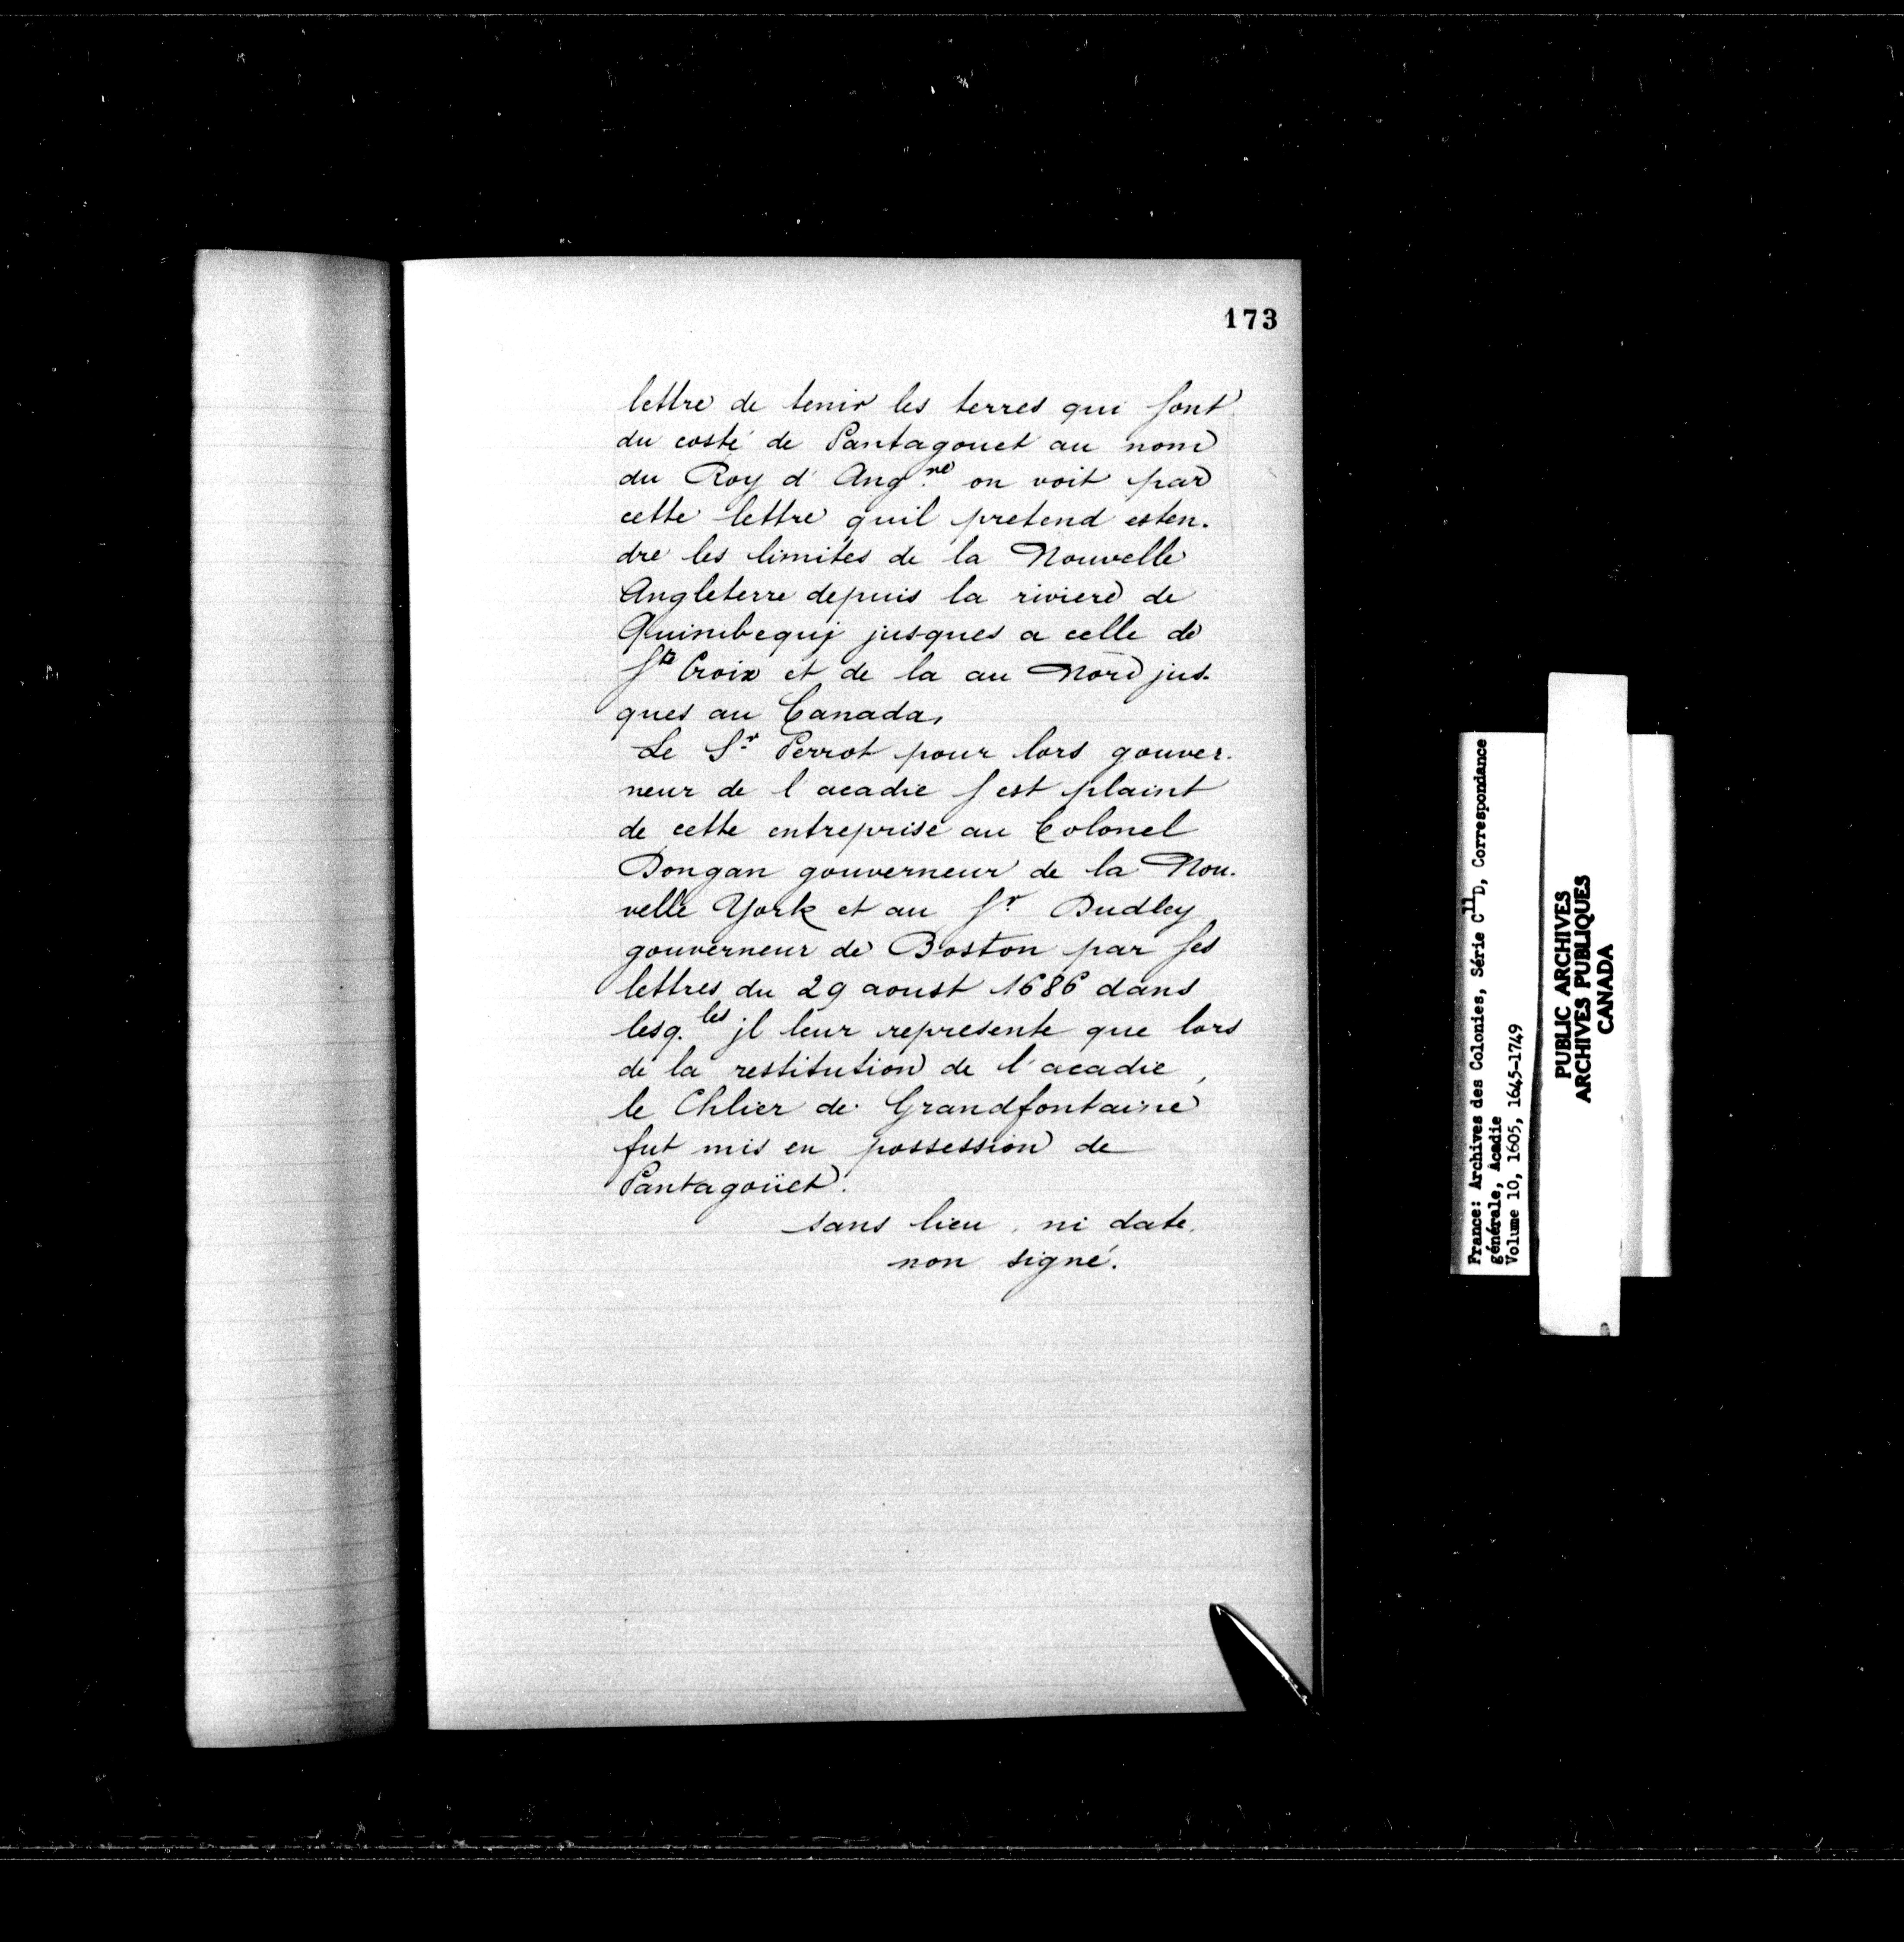 173
lettre de tenir les terres qui sont
du costé de Pantagouet au nom
du Roy d'Ang.re on voit par
cette lettre quil pretend esten-
dre les limites de la Nouvelle
Angleterre depuis la riviere de
Quinibequj jusques a celle de
Ste Croix et de la au Nord jus-
ques au Canada,
Le Sr Perrot pour lors gouver-
neur de l acadie s est plaint
de cette entreprise au Colonel
Dongan gouverneur de la Nou-
velle York et au Sr Dudley
gouverneur de Boston par ses
lettres du 29 aoust 1686 dans
lesq.les jl leur represente que lors
de la restitution de l'acadie,
le Chlier de Grandfontaine
fut mis en possession de
Pantagoüet.
sans lieu, ni date.
non signé.
France: Archives des Colonies, Série C11D, Correspondance
générale, Acadie
Volume 10, 1605, 1645-1749
PUBLIC ARCHIVES
ARCHIVES PUBLIQUES
CANADA